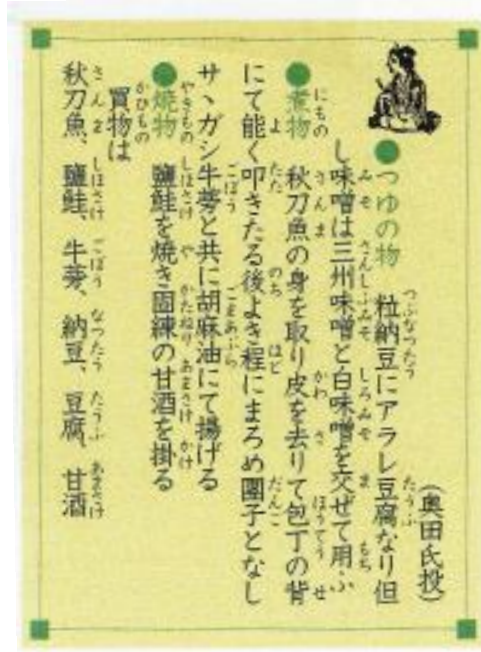 (奥田氏投)
●つゆの物　粒納豆にアラレ豆腐なり但
し味噌は三州味噌と白味噌を交ぜて用ふ
●煮物　秋刀魚の身を取り皮を去りて包丁の背
にて能く叩きたる後よき程にまろめ團子となし
サヽガシ牛蒡と共に胡麻油にて揚げる
●焼物　鹽鮭を焼き固練の甘酒を掛る
買物は
秋刀魚、鹽鮭、牛蒡、納豆、豆腐、甘酒